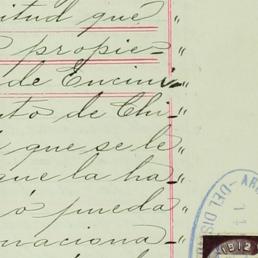 itud que "
propie= "
de Encini= "
to de Chi= "
que se le "
que la ha= "
ó pueda "
naciona= "
AR
DEL DIS
1912